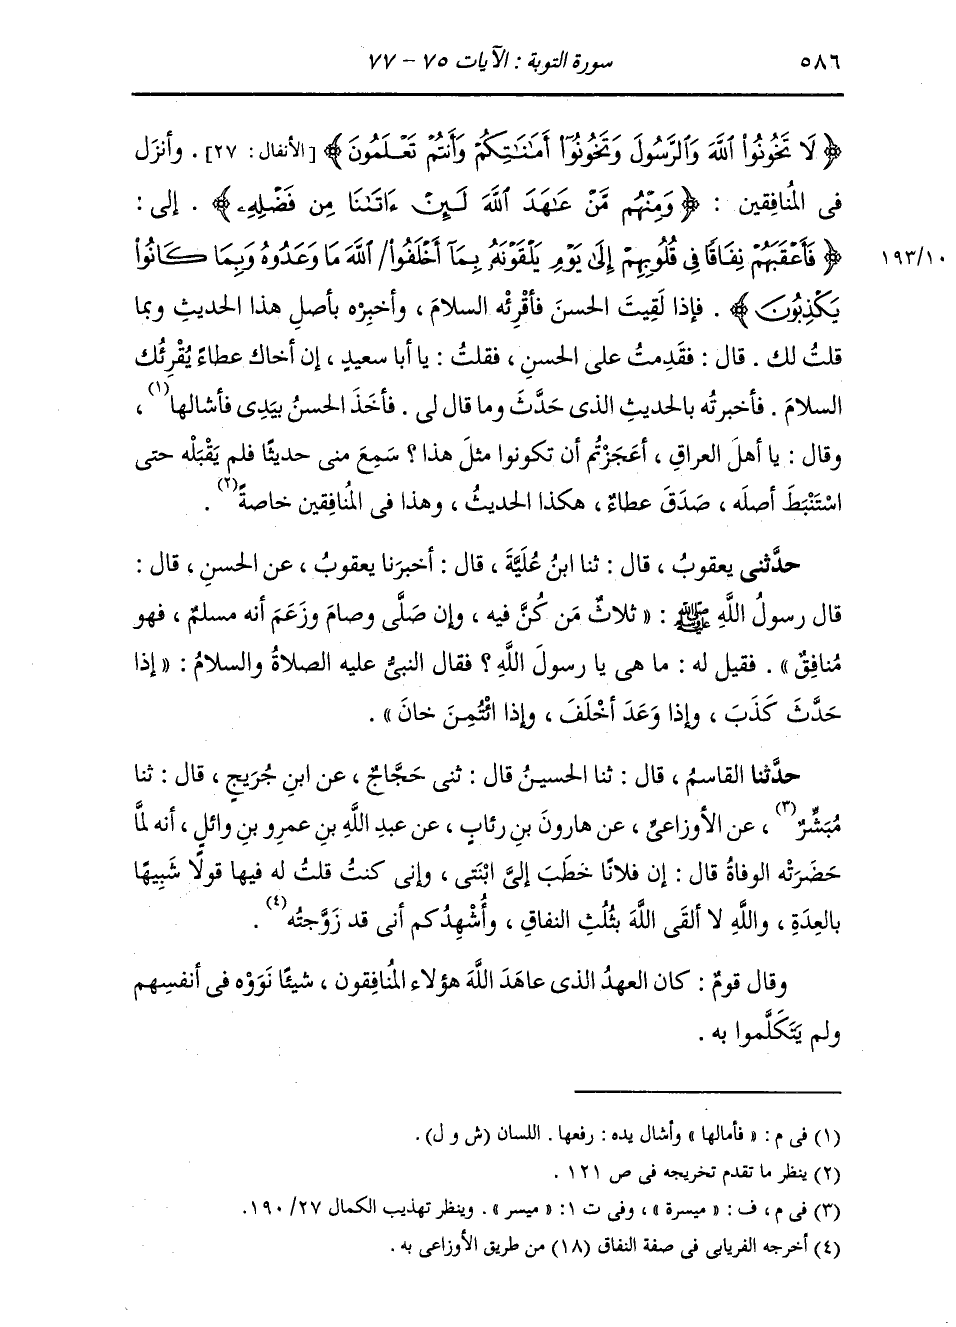 ٥٨٦ سورة التوبة : الآيات ٧٥ - ٧٧
﴿ لَا تَخُونُوا۟ ٱللَّهَ وَٱلرَّسُولَ وَتَخُونُوٓا۟ أَمَـٰنَـٰتِكُمْ وَأَنتُمْ تَعْلَمُونَ ﴾ [الأنفال: ٢٧] . وأنزَل
فى المُنافِقين : ﴿ وَمِنْهُم مَّنْ عَـٰهَدَ ٱللَّهَ لَئِنْ ءَاتَىٰنَا مِن فَضْلِهِۦ ﴾ . إلى :
﴿ فَأَعْقَبَهُمْ نِفَاقًا فِى قُلُوبِهِمْ إِلَىٰ يَوْمِ يَلْقَوْنَهُۥ بِمَآ أَخْلَفُوا۟/ ٱللَّهَ مَا وَعَدُوهُ وَبِمَا كَانُوا۟ ١٩٣/١٠
يَكْذِبُونَ ﴾ . فإذا لَقِيتَ الحسنَ فأَقْرِئْه السلامَ ، وأخبِرْه بأصلِ هذا الحديثِ وبما
قلتُ لك . قال : فقَدِمتُ على الحسنِ ، فقلتُ : يا أبا سعيدٍ ، إن أخاك عطاءً يُقْرِئُك
السلامَ . فأخبرتُه بالحديثِ الذى حَدَّثَ وما قال لى . فأخَذَ الحسنُ بيَدِى فأشالها(١) ،
وقال : يا أهلَ العراقِ ، أعَجَزْتُم أن تكونوا مثلَ هذا ؟ سَمِعَ منى حديثًا فلم يَقْبَلْه حتى
اسْتَنْبَطَ أصلَه ، صَدَقَ عطاءٌ ، هكذا الحديثُ ، وهذا فى المُنافِقين خاصةً(٢) .
حدَّثنى يعقوبُ ، قال : ثنا ابنُ عُلَيَّةَ ، قال : أخبرَنا يعقوبُ ، عن الحسنِ ، قال :
قال رسولُ اللَّهِ ﷺ : « ثلاثٌ مَن كُنَّ فيه ، وإن صَلَّى وصامَ وزَعَمَ أنه مسلمٌ ، فهو
مُنافِقٌ » . فقيل له : ما هى يا رسولَ اللَّهِ ؟ فقال النبىُّ عليه الصلاةُ والسلامُ : « إذا
حَدَّثَ كَذَبَ ، وإذا وَعَدَ أخْلَفَ ، وإذا ائْتُمِنَ خانَ » .
حدَّثنا القاسمُ ، قال : ثنا الحسينُ قال : ثنى حَجَّاجٌ ، عن ابنِ جُرَيجٍ ، قال : ثنا
مُبَشِّرٌ(٣) ، عن الأوزاعىِّ ، عن هارونَ بنِ رئابٍ ، عن عبدِ اللَّهِ بنِ عمرِو بنِ وائلٍ ، أنه لمَّا
حَضَرَتْه الوفاةُ قال : إن فلانًا خطَبَ إلىَّ ابْنَتى ، وإنى كنتُ قلتُ له فيها قولًا شَبِيهًا
بالعِدَةِ ، واللَّهِ لا ألقَى اللَّهَ بثُلُثِ النفاقِ ، وأُشْهِدُكم أنى قد زَوَّجتُه(٤) .
وقال قومٌ : كان العهدُ الذى عاهَدَ اللَّهَ هؤلاء المُنافِقون ، شيئًا نَوَوْه فى أنفسِهم
ولم يَتَكَلَّموا به .
(١) فى م : « فأمالها » وأشال يده : رفعها . اللسان (ش و ل) .
(٢) ينظر ما تقدم تخريجه فى ص ١٢١ .
(٣) فى م ، ف : « ميسرة » ، وفى ت ١: « ميسر » . وينظر تهذيب الكمال ٢٧/ ١٩٠.
(٤) أخرجه الفريابى فى صفة النفاق (١٨) من طريق الأوزاعى به .